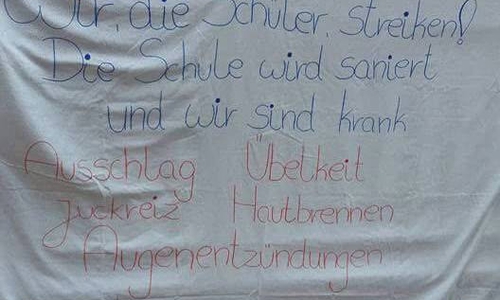 Wir, die Schüler, streiken!
Die Schule wird saniert
und wir sind krank
Ausschlag Übelkeit
Juckreiz Hautbrennen
Augenentzündungen